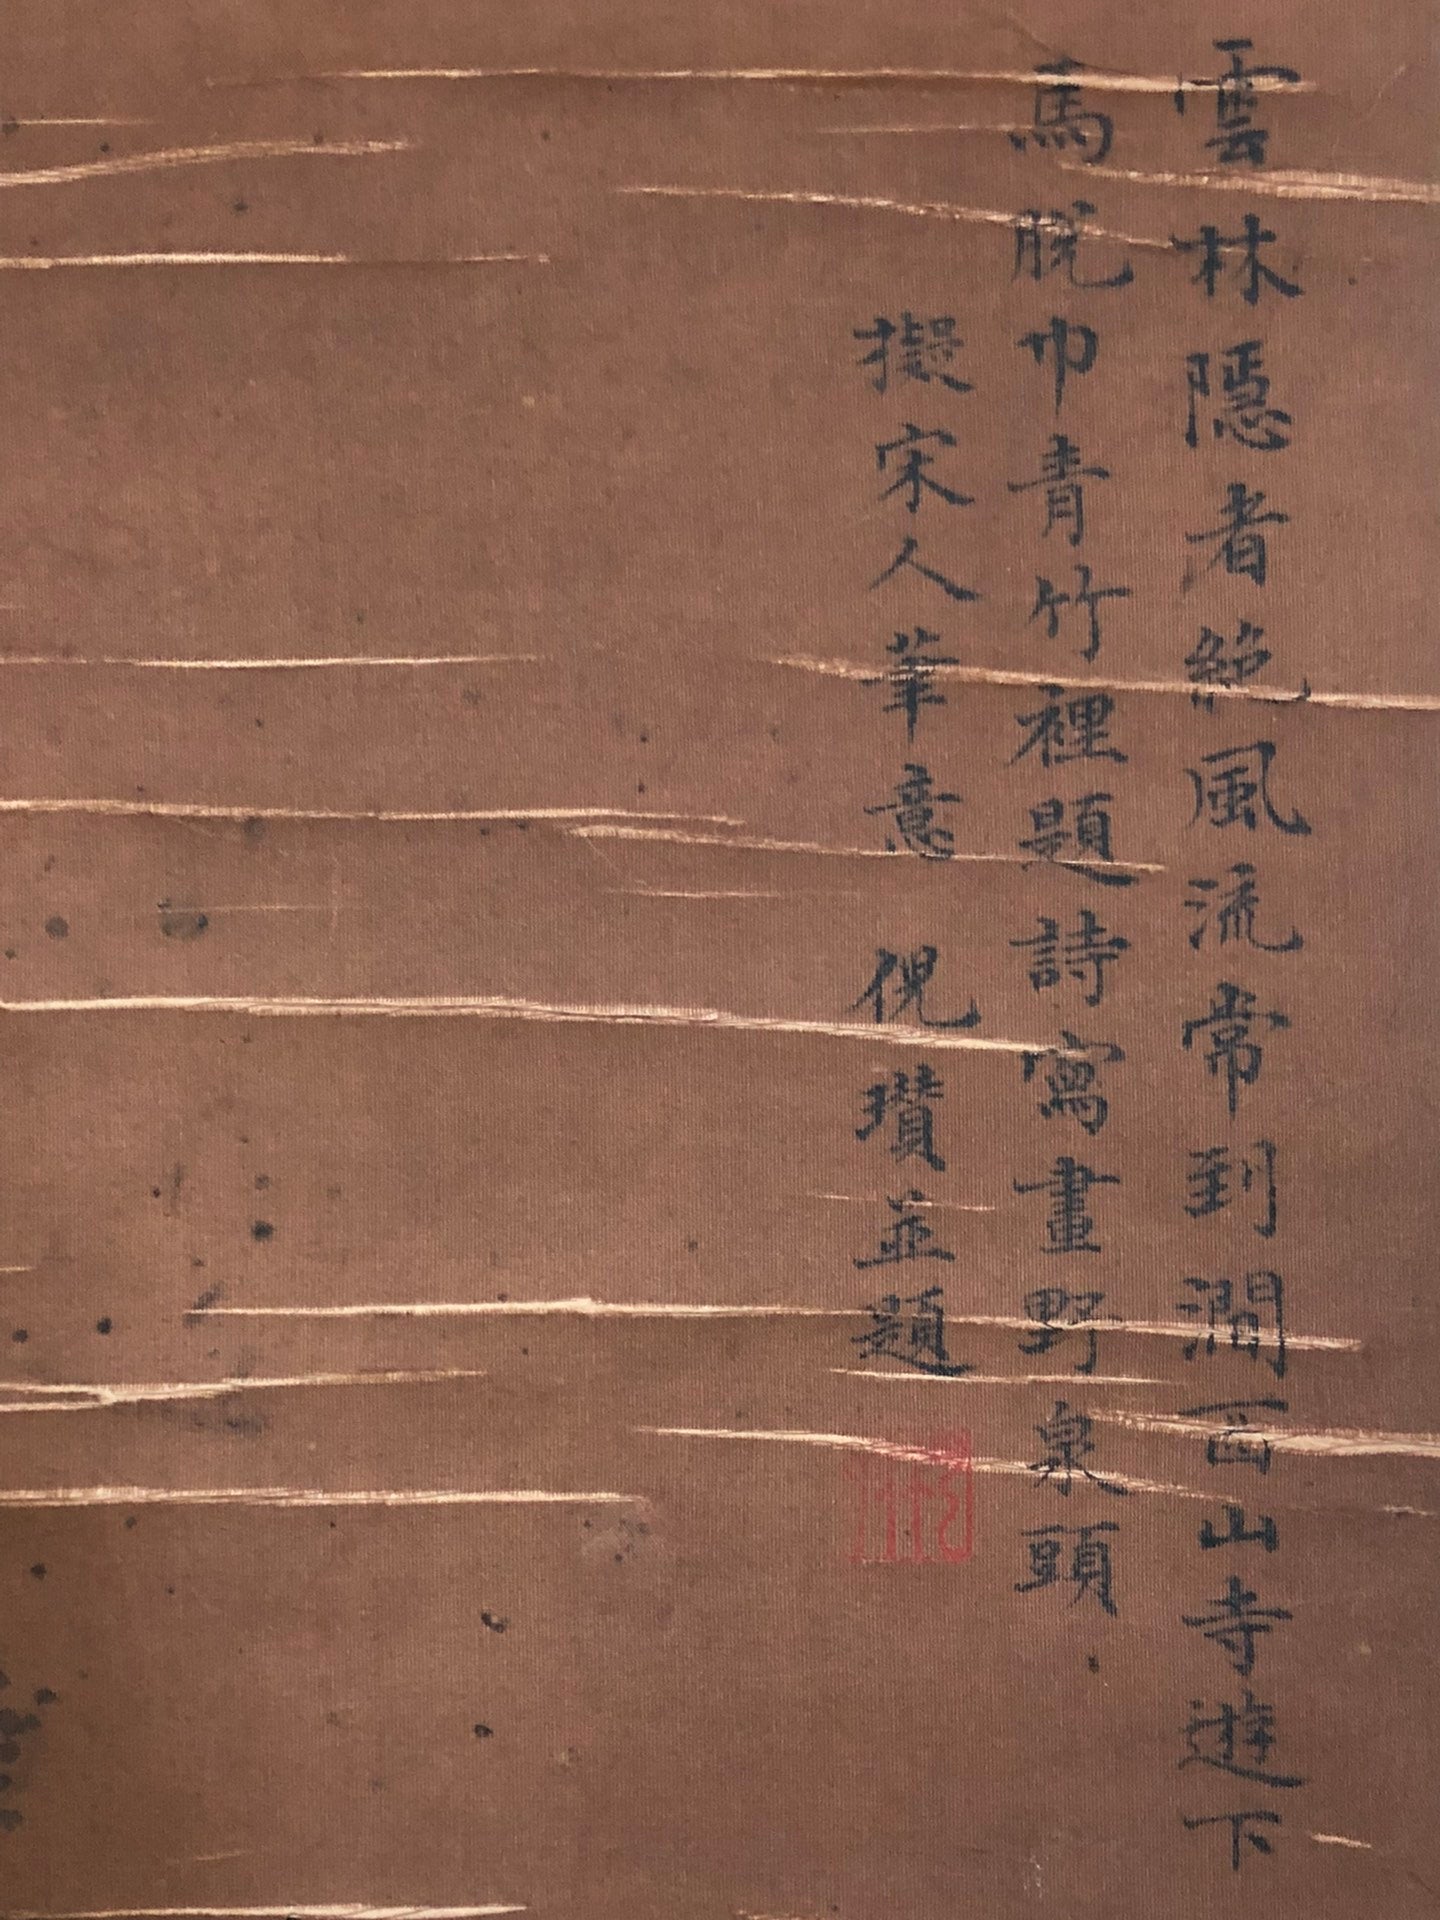 雲林隱者絶風流常到澗西山寺遊下
馬脱巾青竹裡題詩寫畫野泉頭
擬宋人筆意 倪瓚並題